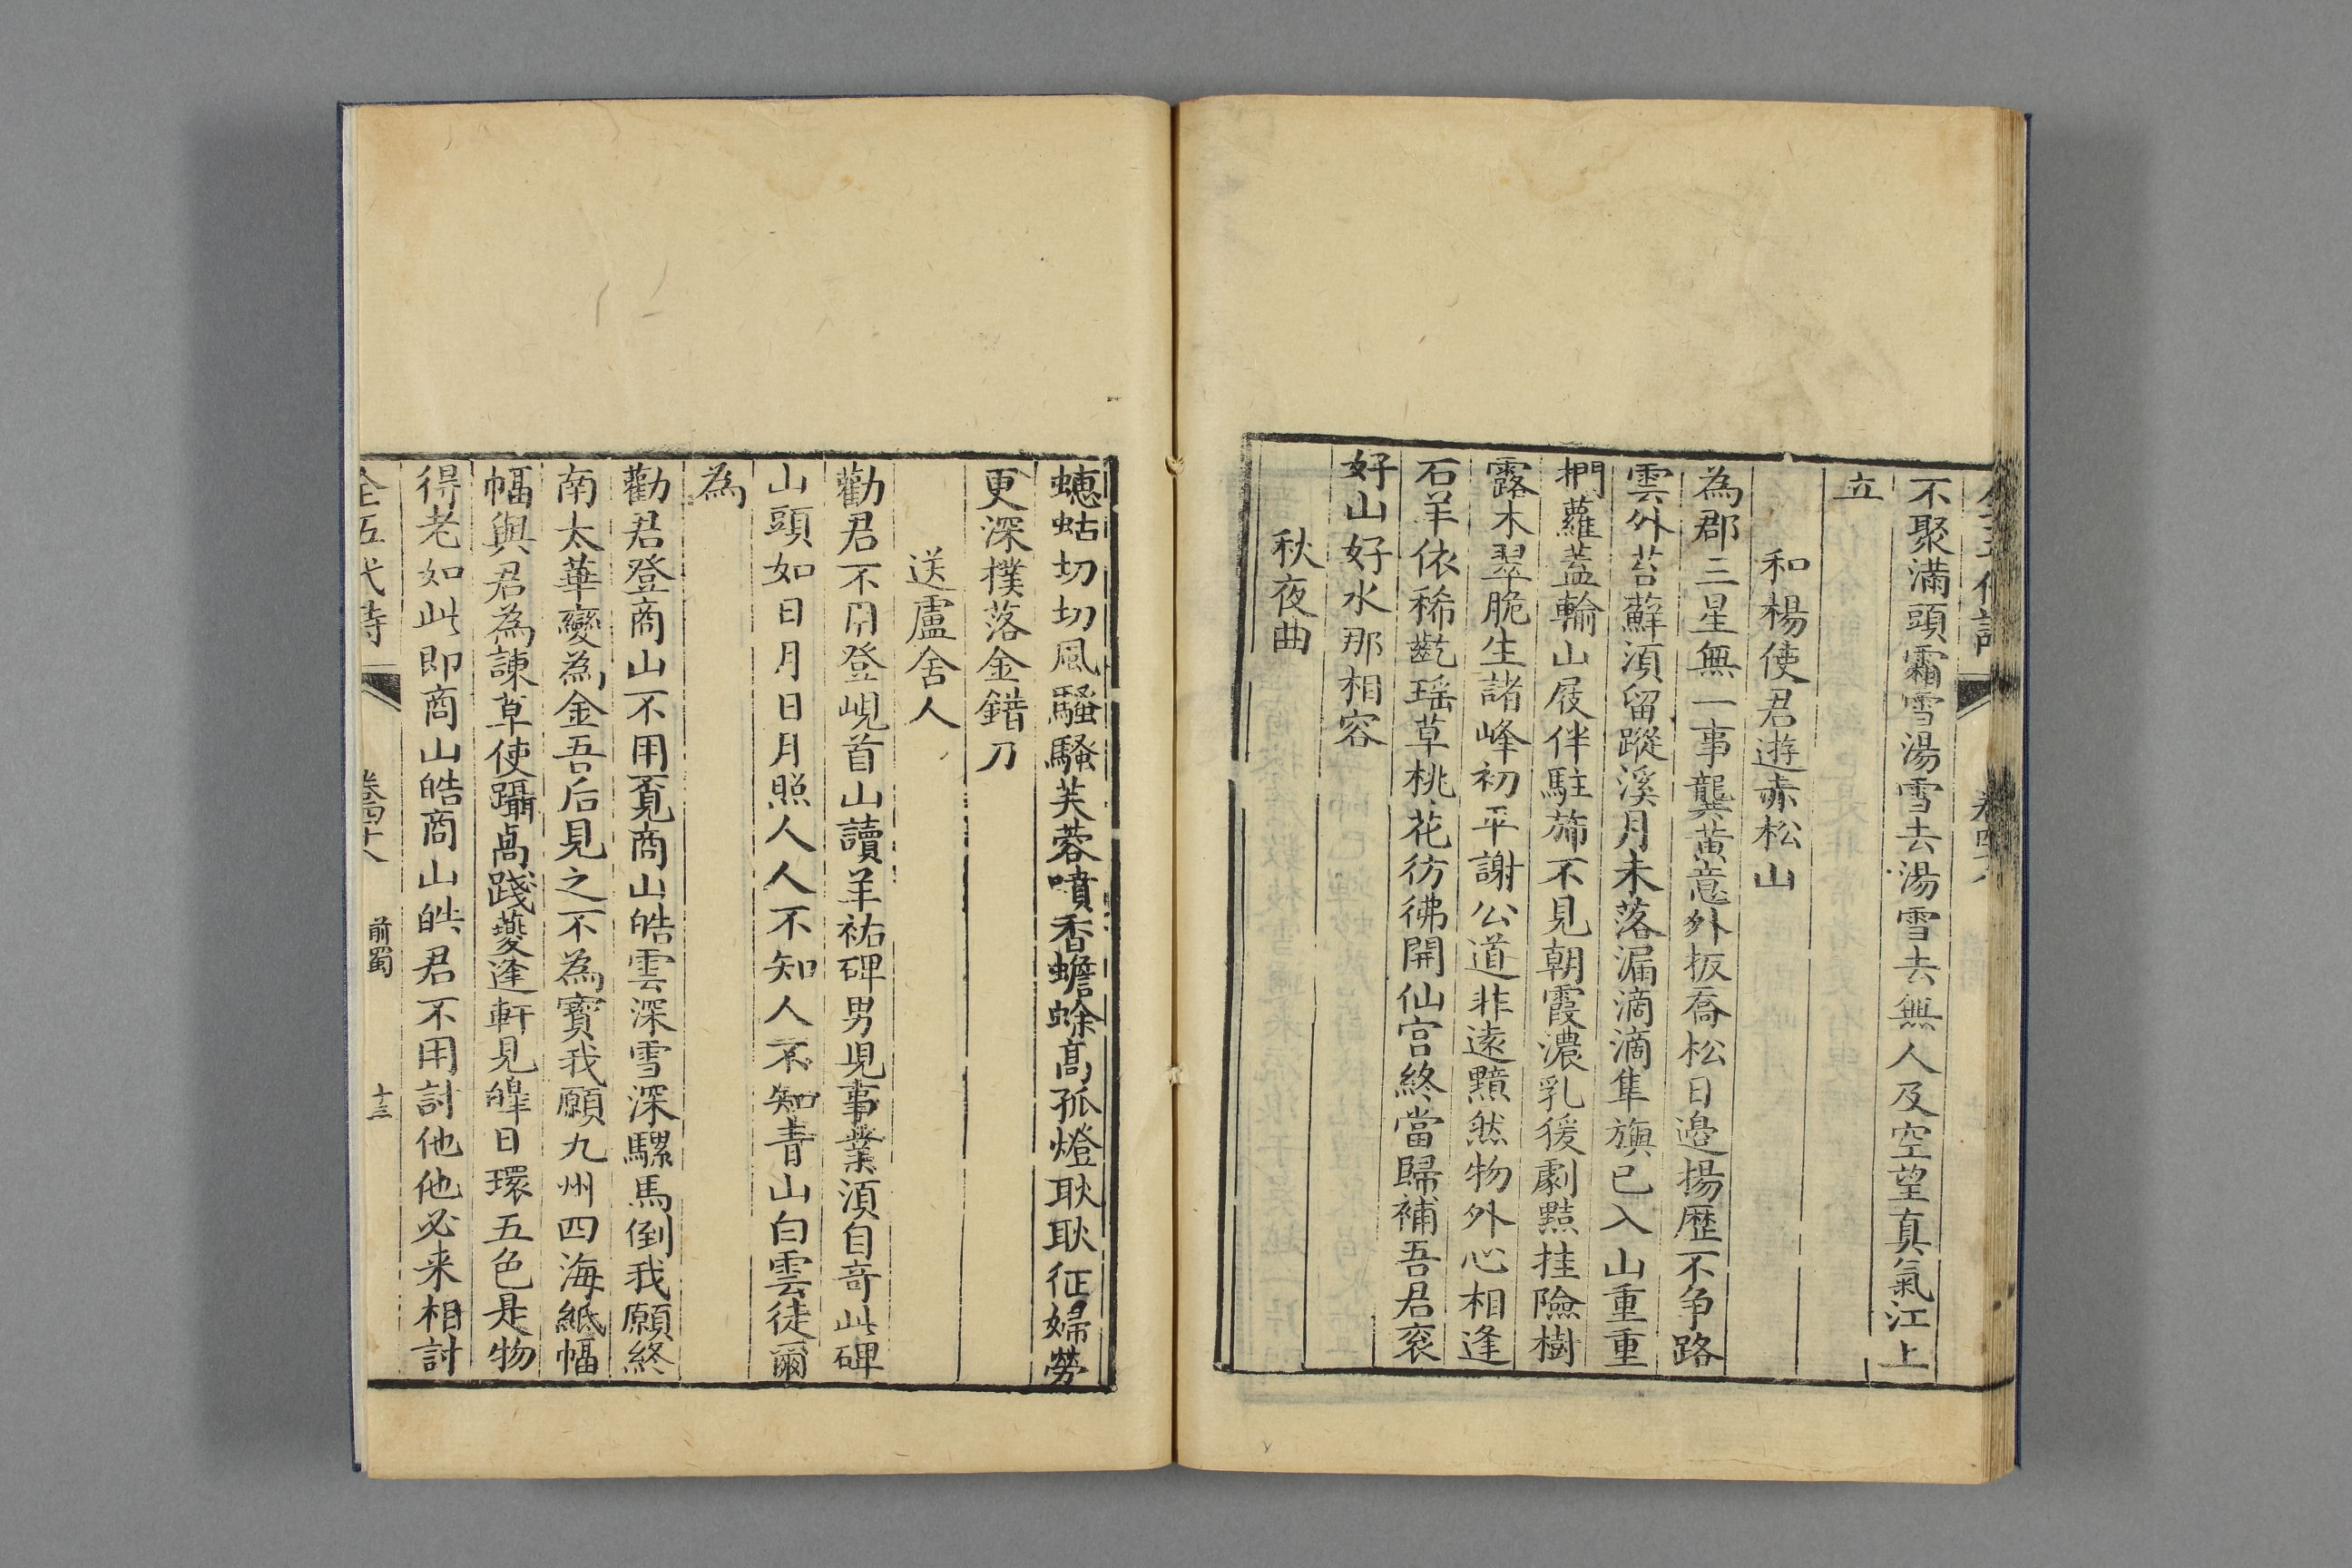 不聚滿頭霜雪湯雪去湯雪去無人及空望真氣江上
立
和楊使君遊赤松山
為郡三星無一事龔黃意外扳喬松日邉揚歷不争路
雲外苔蘚湏留蹤溪月未落漏滴滴隼旟已入山重重
捫蘿蓋輪山屐伴駐斾不見朝霞濃乳猨劇黠挂險樹
露木翠脆生諸峰初平謝公道非遠黯然物外心相逢
石羊依稀齕瑶草桃花彷彿開仙宫終當歸補吾君衮
好山好水那相容
秋夜曲
蟪蛄切切風騷騷芙蓉噴香蟾蜍髙孤燈耿耿征婦勞
更深撲落金錯刀
送盧舍人
勸君不用登峴首山讀羊祜碑男兒事業湏自竒此碑
山頭如日月日月照人人不知人不知青山白雲徒爾
為
勸君登商山不用覓商山皓雲深雪深騾馬倒我願終
南太華變為金吾后見之不為寳我願九州四海紙幅
幅與君為諫草使躡卨踐夔逢軒見皥日環五色是物
得老如此即商山皓商山皓君不用討他他必来相討
全五代詩 卷四十八 前蜀 十三